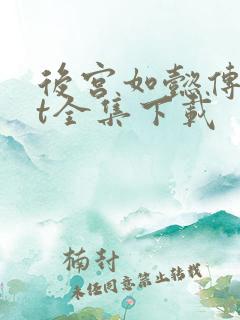 後宮如懿傳
t全集下載
楠封
未经同意禁止转载